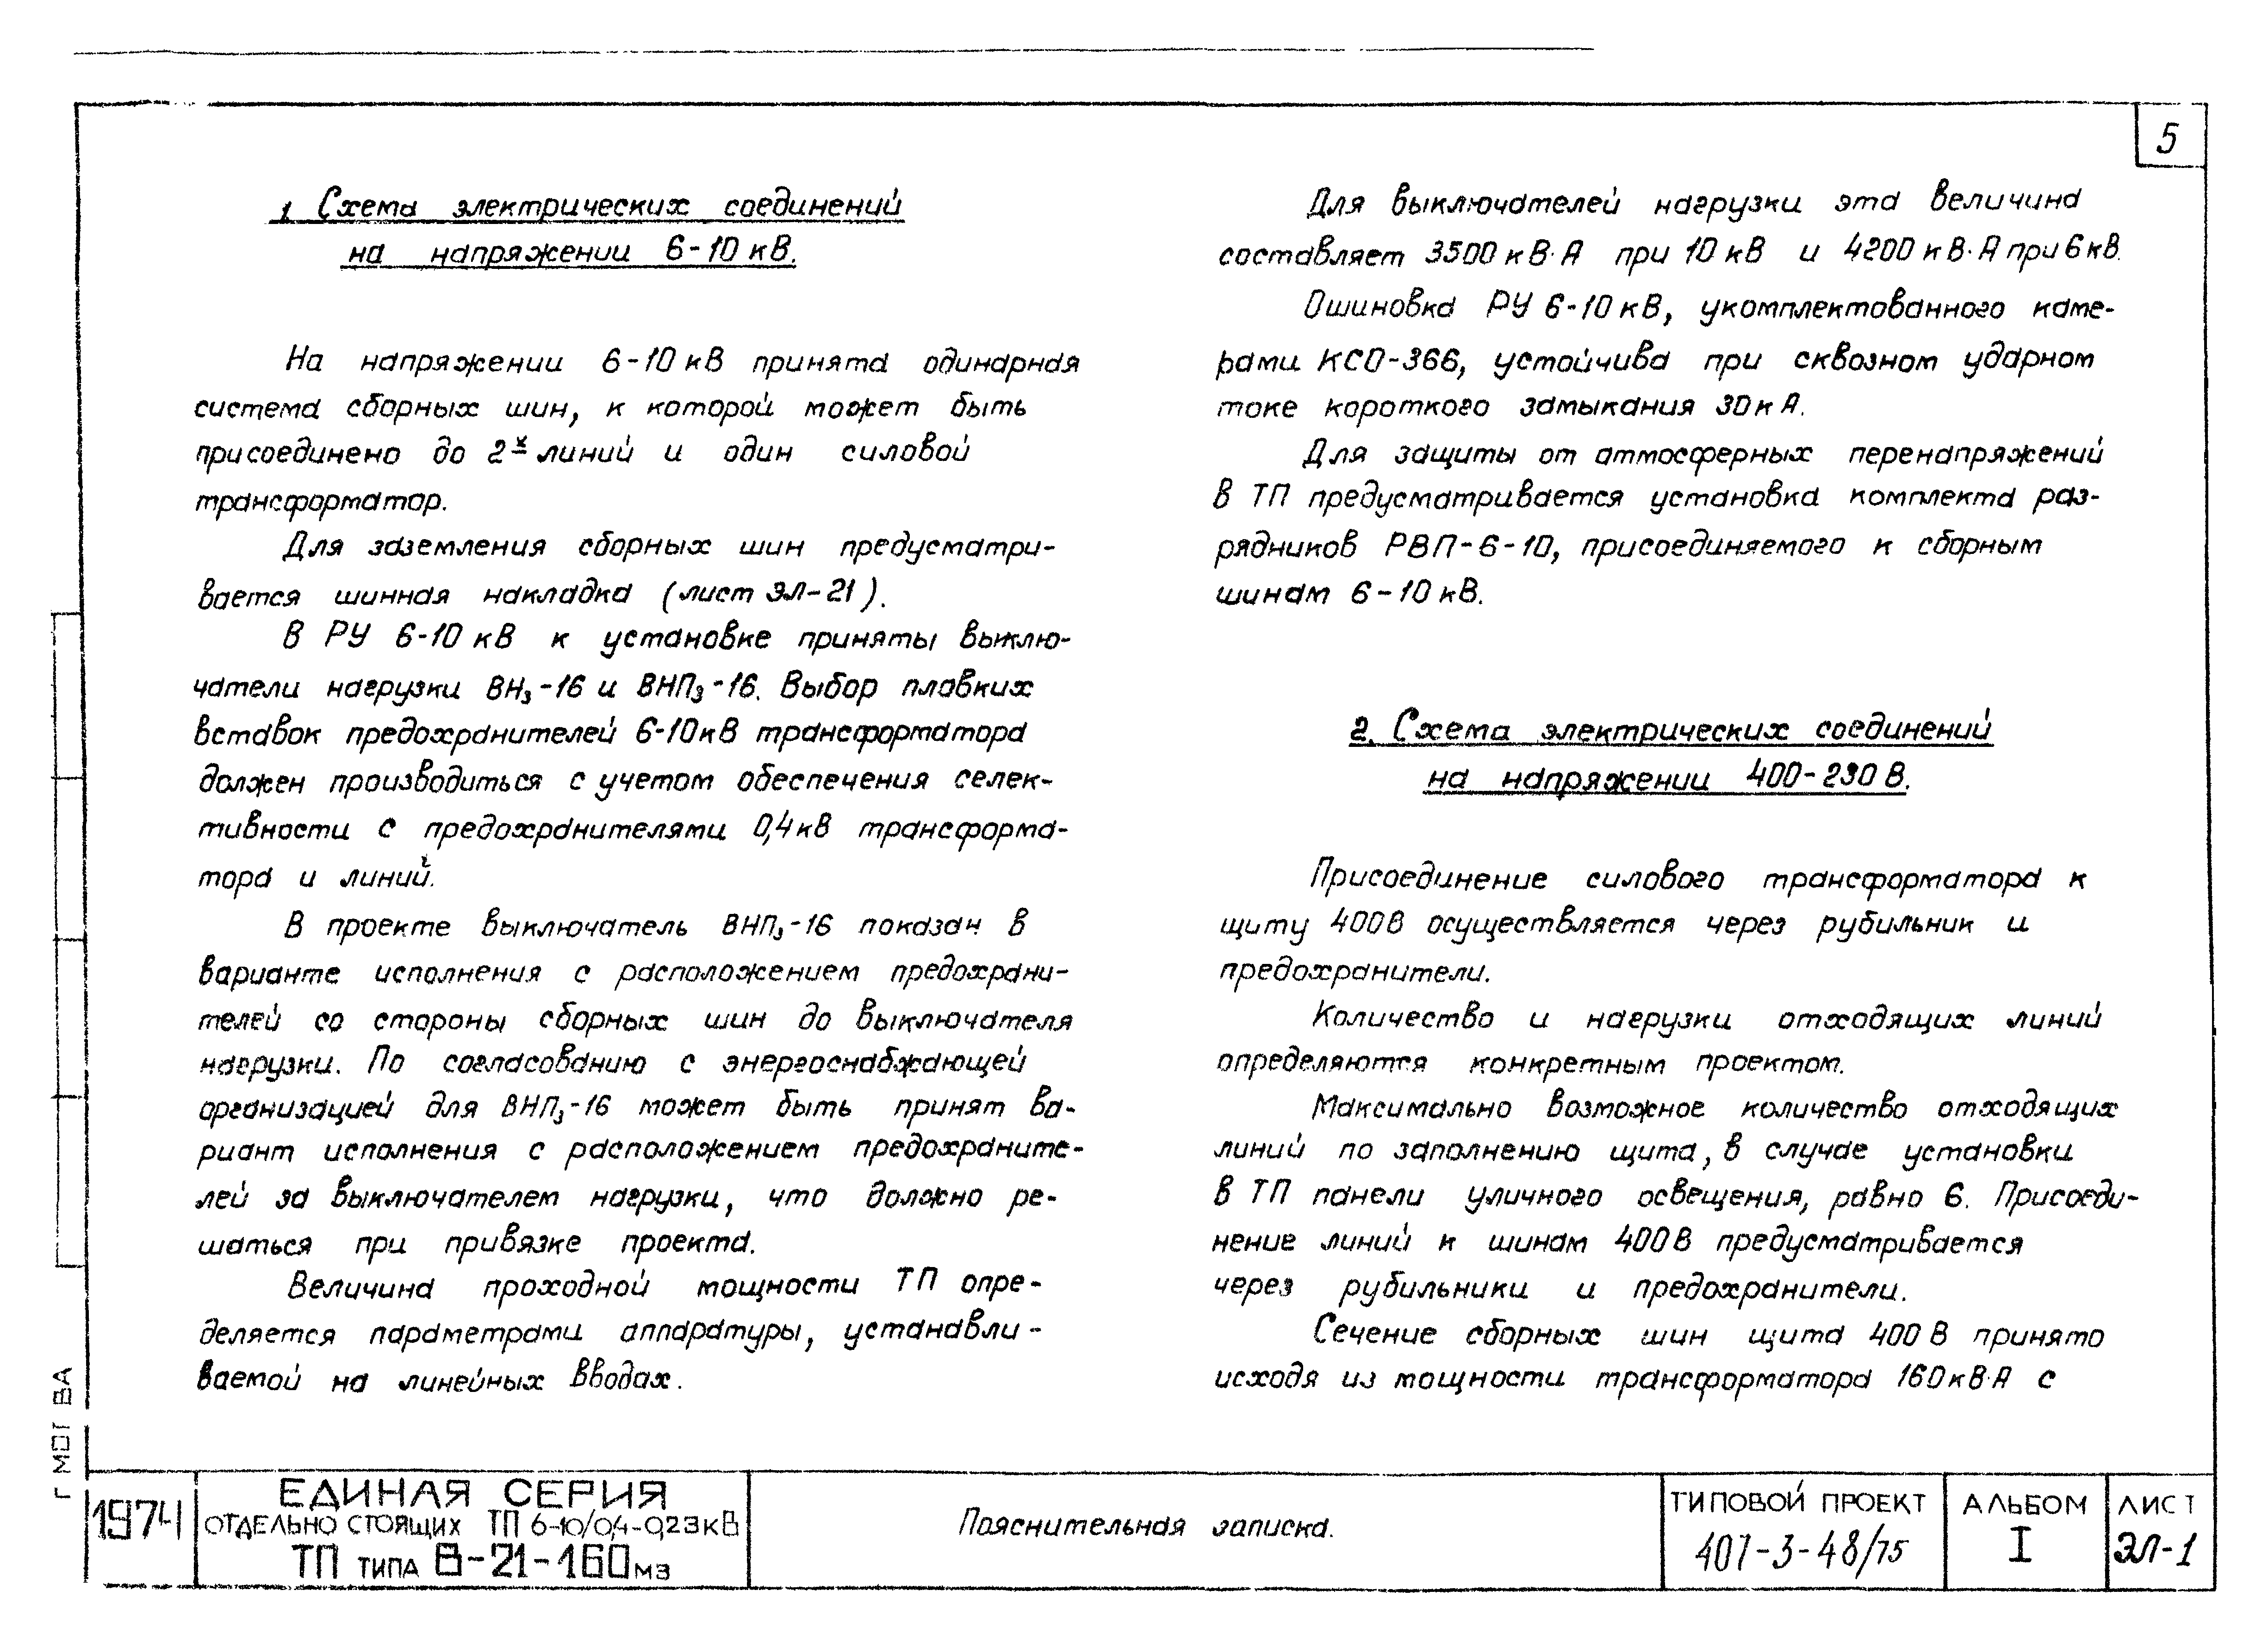 5
1. Схема электрических соединений
на напряжении 6-10 кВ.
На напряжении 6-10 кВ принята одинарная
система сборных шин, к которой может быть
присоединено до 2х линий и один силовой
трансформатор.
Для заземления сборных шин предусматри-
вается шинная накладка (лист ЭЛ-21).
В РУ 6-10 кВ к установке приняты выклю-
чатели нагрузки ВНз-16 и ВНПз-16. Выбор плавких
вставок предохранителей 6-10кВ трансформатора
должен производиться с учетом обеспечения селек-
тивности с предохранителями 0,4кВ трансформа-
тора и линий.
В проекте выключатель ВНПз-16 показан в
варианте исполнения с расположением предохрани-
телей со стороны сборных шин до выключателя
нагрузки. По согласованию с энергоснабжающей
организацией для ВНПз-16 может быть принят ва-
риант исполнения с расположением предохраните-
лей за выключателем нагрузки, что должно ре-
шаться при привязке проекта.
Величина проходной мощности ТП опре-
деляется параметрами аппаратуры, устанавли-
ваемой на линейных вводах.
Для выключателей нагрузки эта величина
составляет 3500 кВ·А при 10 кВ и 4200 кВ·А при 6 кВ.
Ошиновка РУ 6-10 кВ, укомплектованного каме-
рами КСО-366, устойчива при сквозном ударном
токе короткого замыкания 30 кА.
Для защиты от атмосферных перенапряжений
в ТП предусматривается установка комплекта раз-
рядников РВП-6-10, присоединяемого к сборным
шинам 6-10 кВ.
2. Схема электрических соединений
на напряжении 400-230 В.
Присоединение силового трансформатора к
щиту 400В осуществляется через рубильник и
предохранители.
Количество и нагрузки отходящих линий
определяются конкретным проектом.
Максимально возможное количество отходящих
линий по заполнению щита, в случае установки
в ТП панели уличного освещения, равно 6. Присоеди-
нение линий к шинам 400В предусматривается
через рубильники и предохранители.
Сечение сборных шин щита 400 В принято
исходя из мощности трансформатора 160 кВ·А с
1974
ЕДИНАЯ СЕРИЯ
ОТДЕЛЬНО СТОЯЩИХ ТП 6-10/0,4-0,23кВ
ТП ТИПА В-21-160мз
Пояснительная записка.
ТИПОВОЙ ПРОЕКТ
407-3-48/75
АЛЬБОМ
I
ЛИСТ
ЭЛ-1